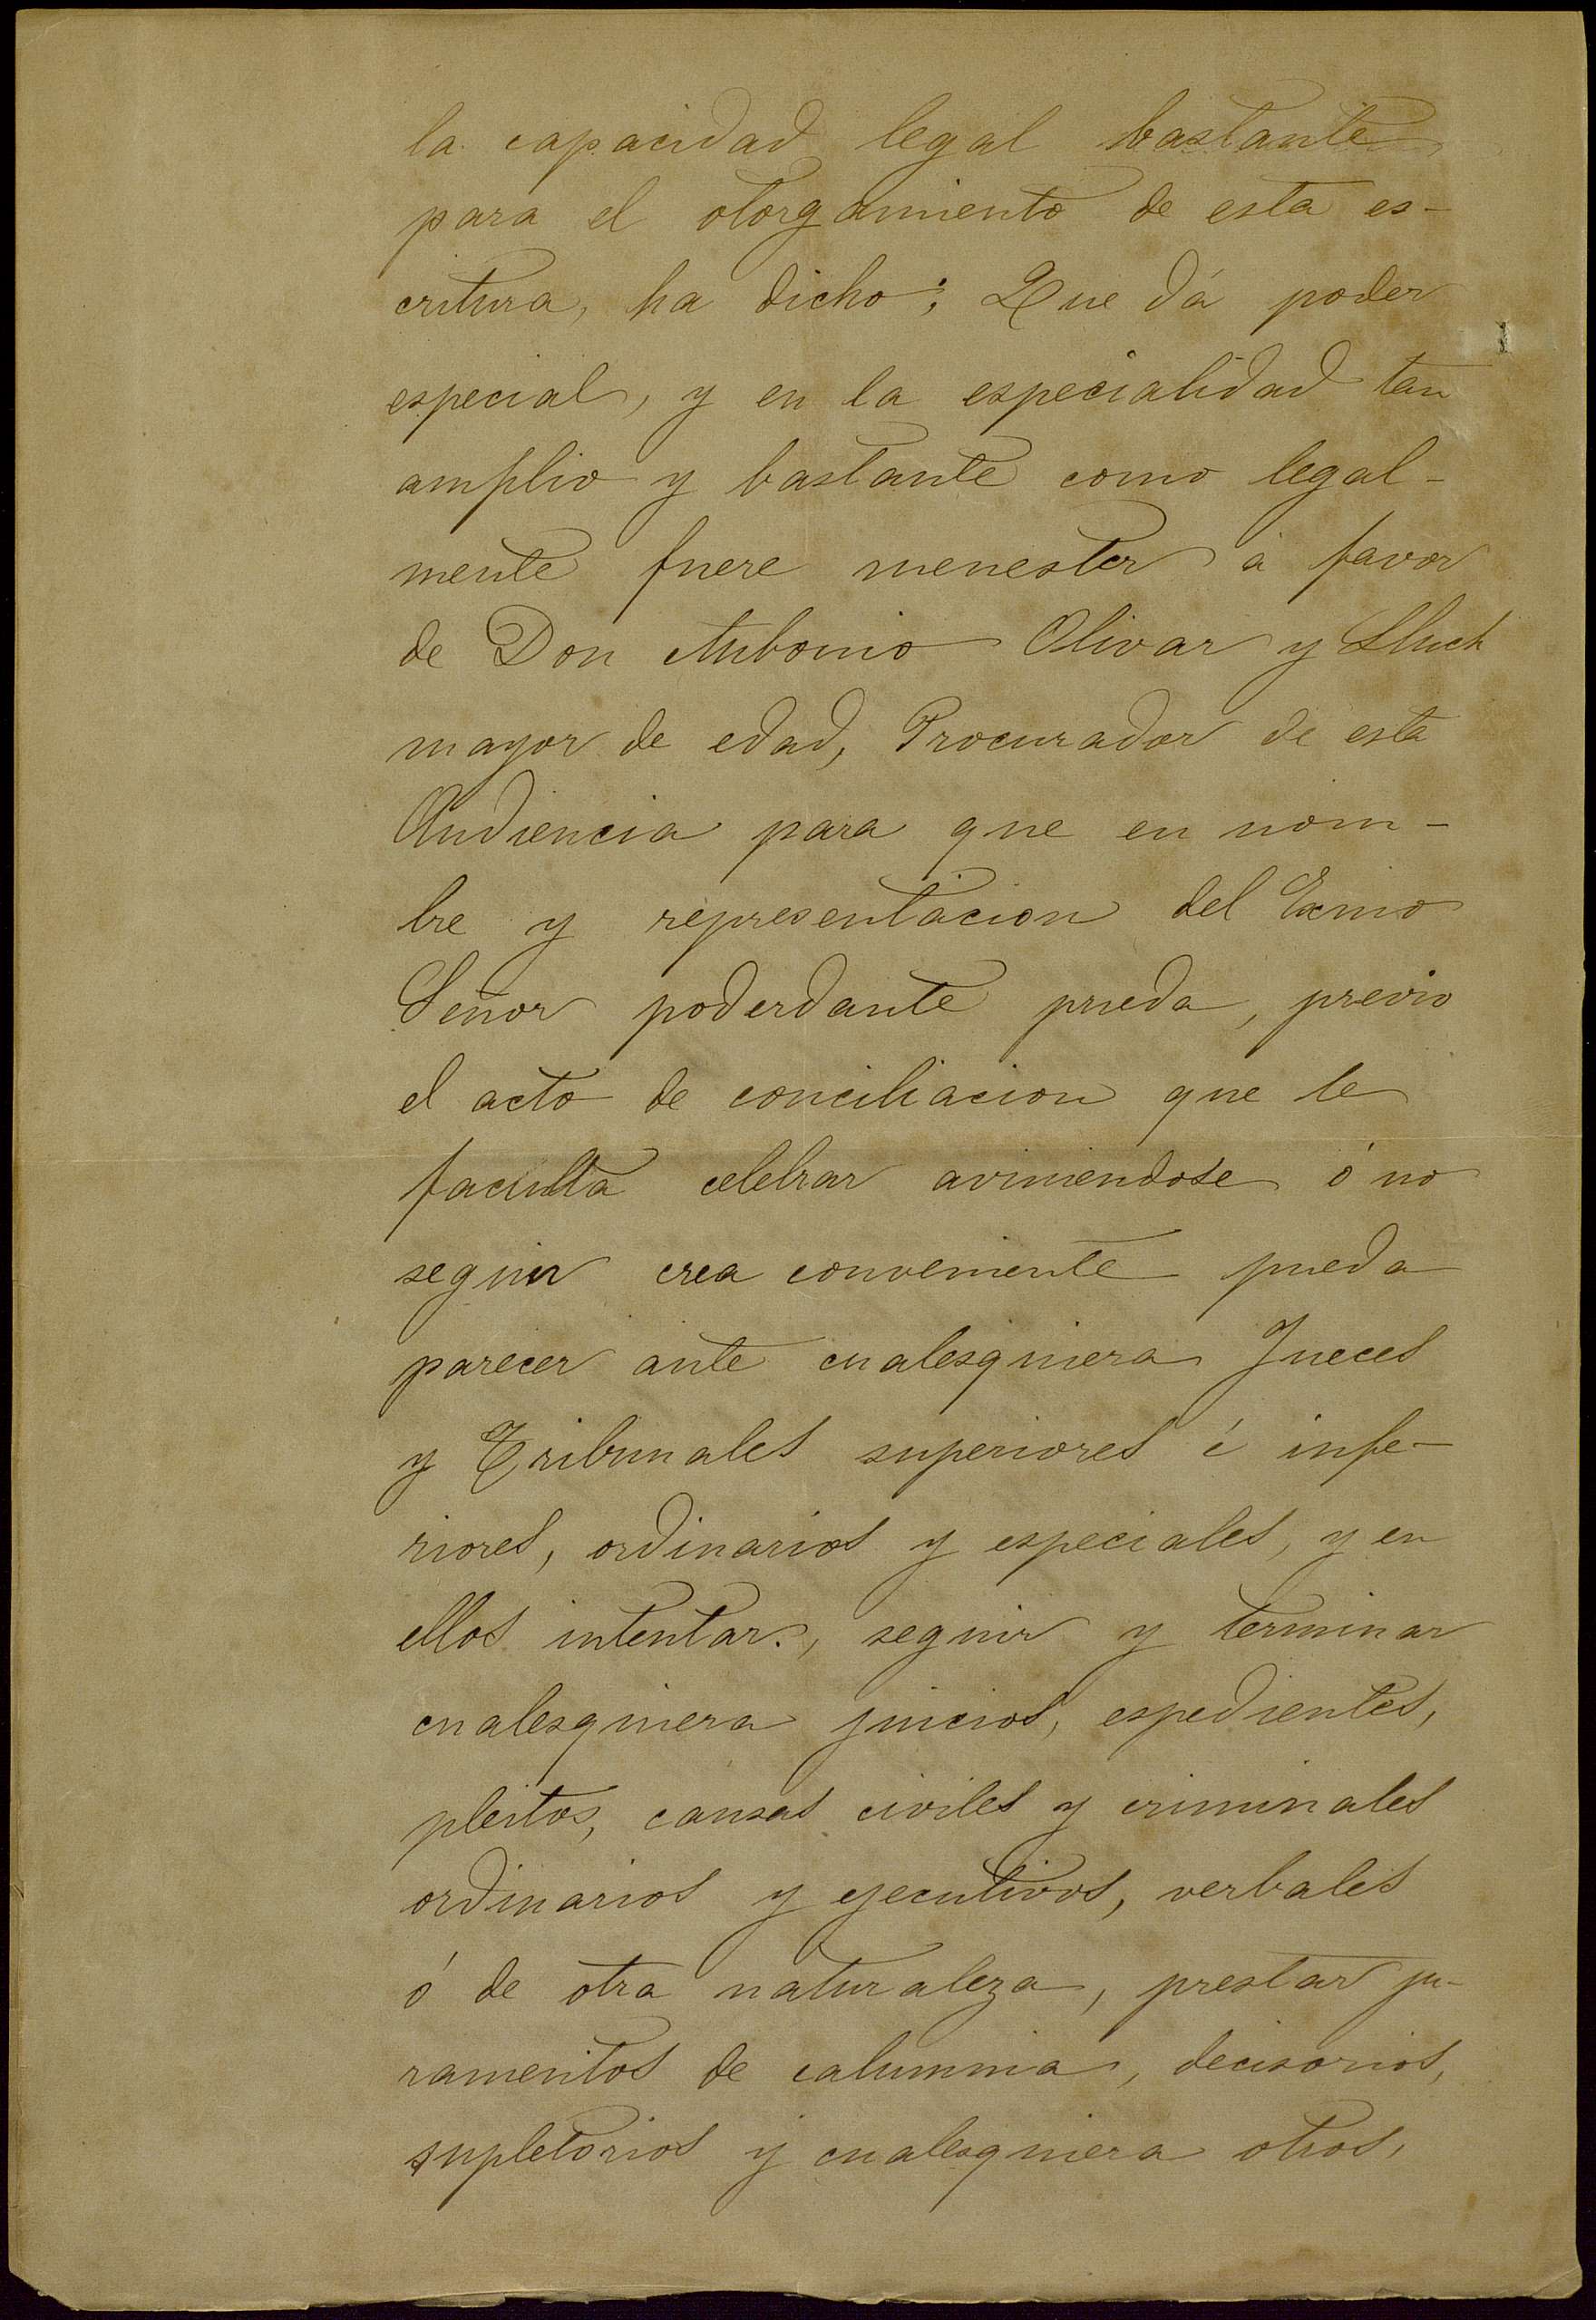 la capacidad legal bastante
para el otorgamiento de esta es-
critura, ha dicho: Que dá poder
especial, y en la especialidad tan
amplio y bastante como legal-
mente fuere menester á favor
de Don Antonio Olivar y Lluch
mayor de edad, Procurador de esta
Audiencia para que en nom-
bre y representacion del Exmo
Señor poderdante pueda, previo
el acto de conciliacion que le
faculta celebrar aviniendose ó no
segun crea conveniente pueda
parecer ante cualesquiera Jueces
y Tribunales superiores é infe-
riores, ordinarios y especiales, y en
ellos intentar, seguir y terminar
cualesquiera juicios, espedientes,
pleitos, causas civiles y criminales
ordinarios y ejecutivos, verbales
ó de otra naturaleza, prestar ju-
ramentos de calumnia, decisorios,
supletorios y cualesquiera otros,